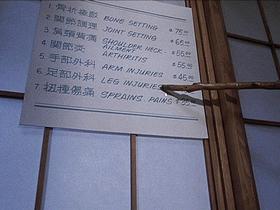 1. 骨折痠軟 BONE SETTING $75.00
2. 關節調理 JOINT SETTING $65.00
3. 肩頸背満 SHOULDER NECK AILMENT $55.00
4. 關節炎 ARTHRITIS $55.00
5. 手部外科 ARM INJURIES $45.00
6. 足部外科 LEG INJURIES
7. 扭撞傷痛 SPRAINS. PAINS